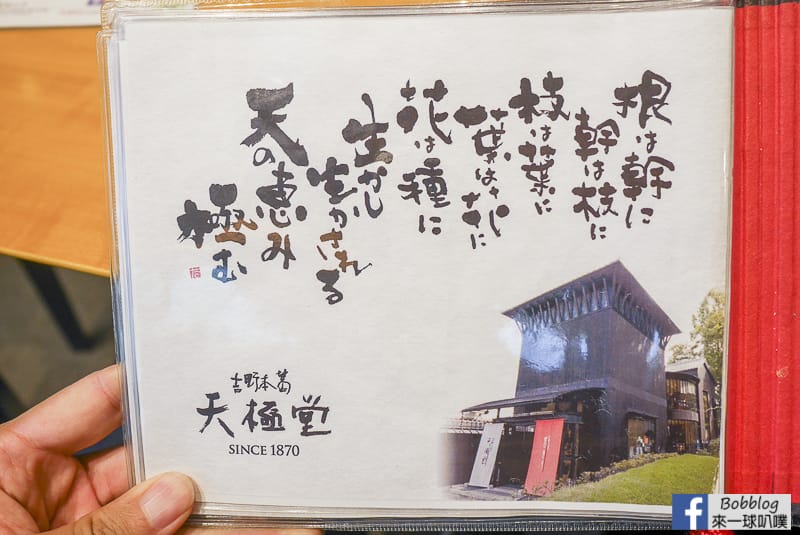 根は幹に
幹は枝に
枝は葉に
葉は花に
花は種に
生かし
生かされる
天の恵み
極む
吉野本葛
天極堂
SINCE 1870
Bobblog
來一球叭噗